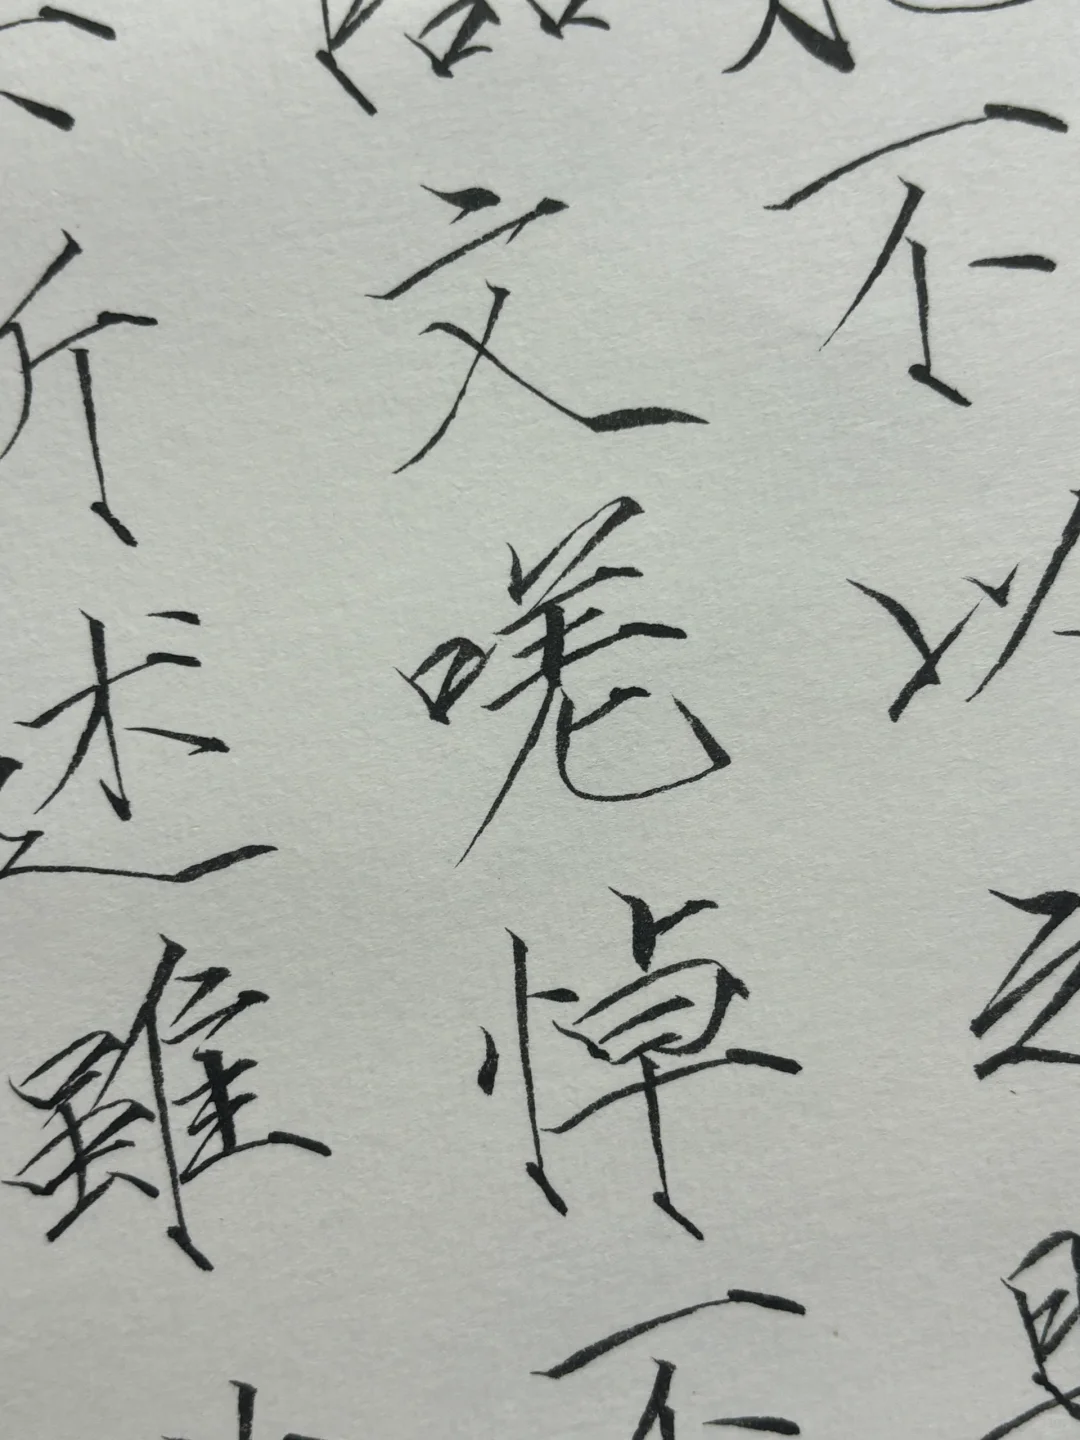 不以之
文嗟悼不
所述雖